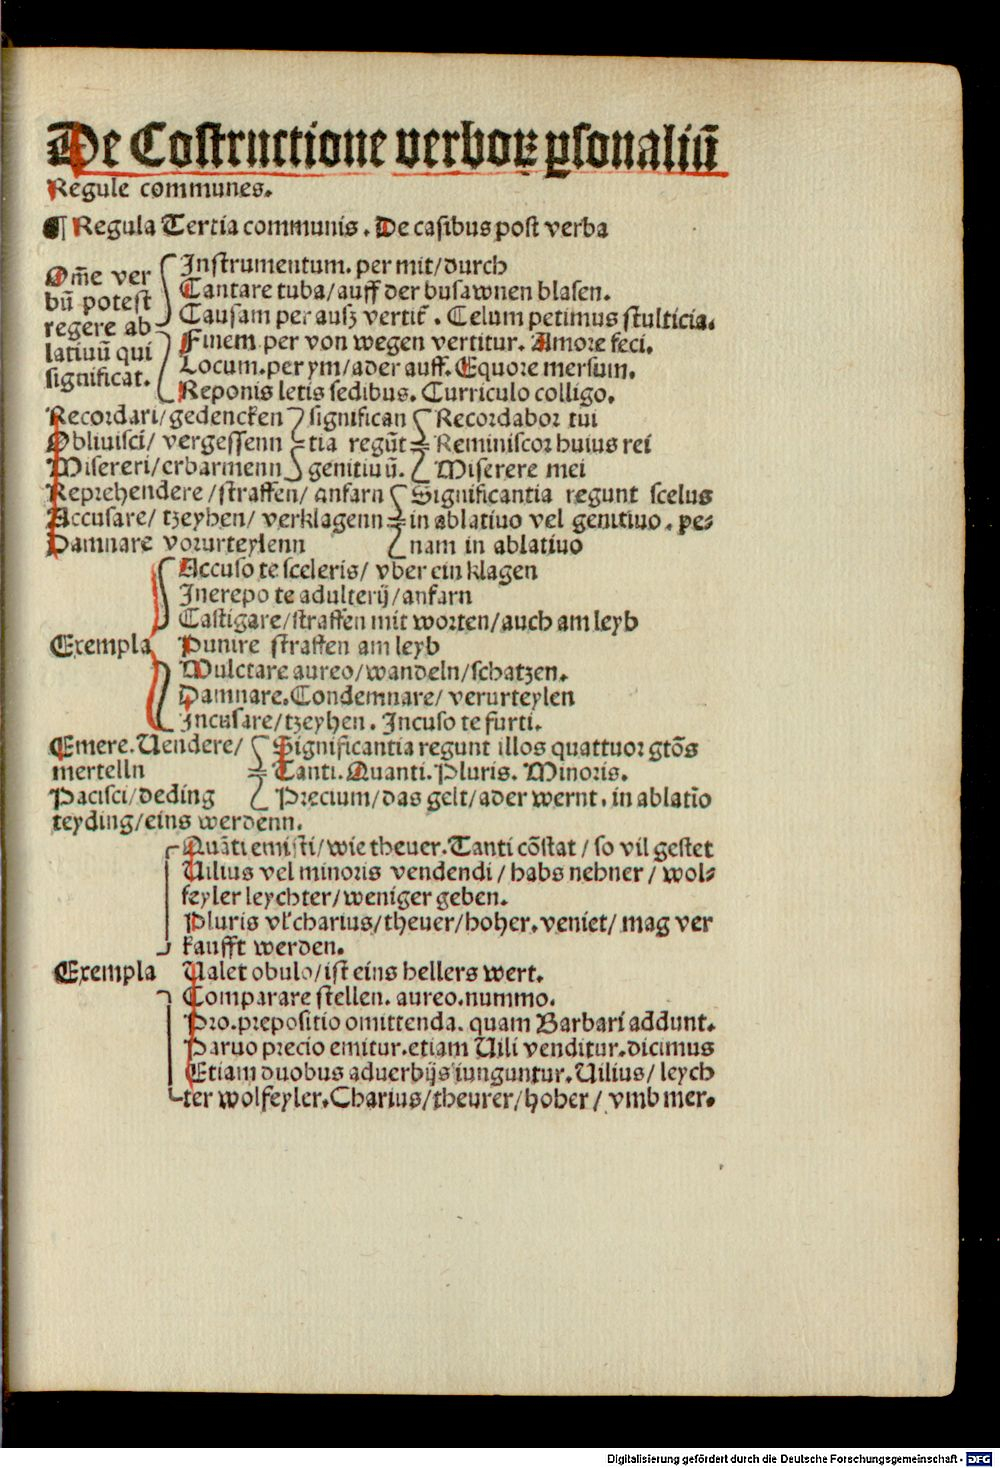 De Cōstructione verboꝝ ꝑsonaliū
Regule communes.
¶ Regula Tertia communis. De casibus post verba
Om̄e ver
bū potest
regere ab
latiuū qui
significat.
Instrumentum. per mit/durch
Cantare tuba/auff der busawnen blasen.
Causam per ausz vertit᷑. Celum petimus stulticia.
Finem per von wegen vertitur. Amore feci.
Locum. per ym/ader auff. Equore mersum.
Reponis letis sedibus. Curriculo colligo.
Recordari/gedencken
Obliuisci/ vergessenn
Misereri/erbarmenn
significan
tia regūt
genitiuū.
Recordabor tui
Reminiscor huius rei
Miserere mei
Reprehendere/straffen/ anfarn
Accusare/ tzeyhen/ verklagenn
Damnare vorurteylenn
Significantia regunt scelus
in ablatiuo vel genitiuo. pe⸗
nam in ablatiuo
Exempla
Accuso te sceleris/ vber ein klagen
Increpo te adulterij/anfarn
Castigare/straffen mit worten/auch am leyb
Punire straffen am leyb
Mulctare aureo/wandeln/schatzen.
Damnare. Condemnare/ verurteylen
Incusare/tzeyhen. Incuso te furti.
Emere. Uendere/
mertelln
Pacisci/deding
teyding/eins werdenn.
Significantia regunt illos quattuor gtōs
Tanti. Quanti. Pluris. Minoris.
Precium/das gelt/ader wernt. in ablatīo
Exempla
Quāti emisti/wie theuer. Tanti cōstat/so vil gestet
Uilius vel minoris vendendi/habs nehner/wol⸗
feyler leychter/weniger geben.
Pluris vl' charius/theuer/hoher. veniet/mag ver
kaufft werden.
Ualet obulo/ist eins hellers wert.
Comparare stellen. aureo. nummo.
Pro. prepositio omittenda. quam Barbari addunt.
Paruo precio emitur. etiam Uili venditur. dicimus
Etiam duobus aduerbijs iunguntur. Uilius/ leych
ter wolfeyler. Charius/theurer/hoher/ vmb mer.
Digitalisierung gefördert durch die Deutsche Forschungsgemeinschaft - DFG